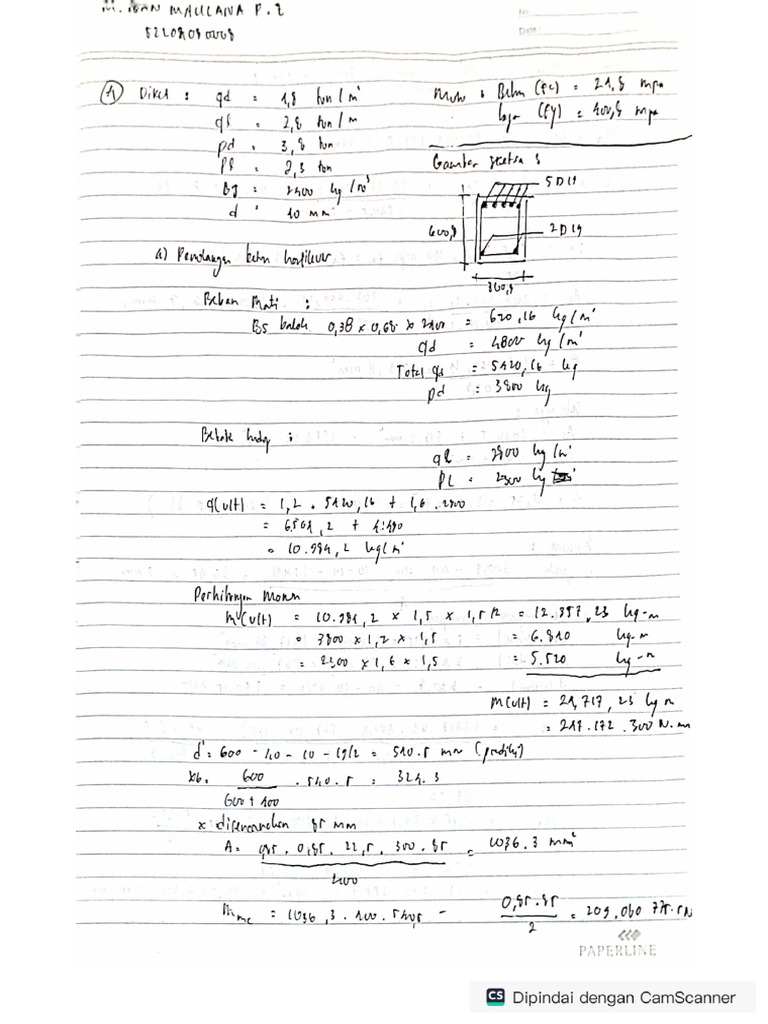 M. IBAN MAULANA P. Z
No.
Date:
① Diket : qd = 1,8 ton/m'
ql = 2,8 ton/m
pd = 3,8 ton
Pl = 2,3 ton
BJ = 2400 kg/m³
d = 10 mm
Mutu : Beton (fc) = 21,8 mpa
(fy) = 400,8 mpa
Gambar sketsa :
5 D 19
2 D 19
600,8
300,8
a) Penulangan beton kantilever
Beban Mati :
BS balok 0,38 x 0,68 x 2400 = 620,16 kg/m'
qd = 4800 kg/m'
Total qd = 5420,16 kg
pd = 3800 kg
hidup :
ql = 2800 kg/m'
PL = 2300 kg
q(ult) = 1,2 . 5420,16 + 1,6 . 2800
= 6.504,2 + 4.480
= 10.984,2 kg/m'
Perhitungan Momen
M(ult) = 10.984,2 x 1,5 x 1,5/2 = 12.357,23 kg-m
= 3800 x 1,2 x 1,5 = 6.840 kg-m
= 2300 x 1,6 x 1,5 = 5.520 kg-m
M(ult) = 24,717,23 kg m
= 247.172.300 N.mm
d' = 600 - 40 - 10 - 19/2 = 540.5 mm
xb. 600 . 540.5 = 324.3
600 + 400
x direncanakan 85 mm
A = 0,85 . 0,85 . 22,5 . 300 . 85 = 1036.3 mm²
400
Mnc = 1036,3 . 400 . 540,5 - 0,85.85 = 209,060 775.5N
2
PAPERLINE
CS Dipindai dengan CamScanner